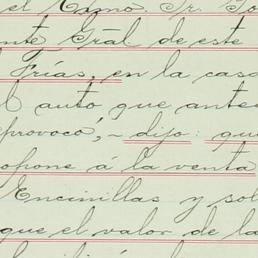 el Exmo. Sr. Go
nte Grál de este
Frías, en la casa
l auto que ante
provocó, ~ dijo: que
opone á la venta
Encinillas y sol
que el valor de la